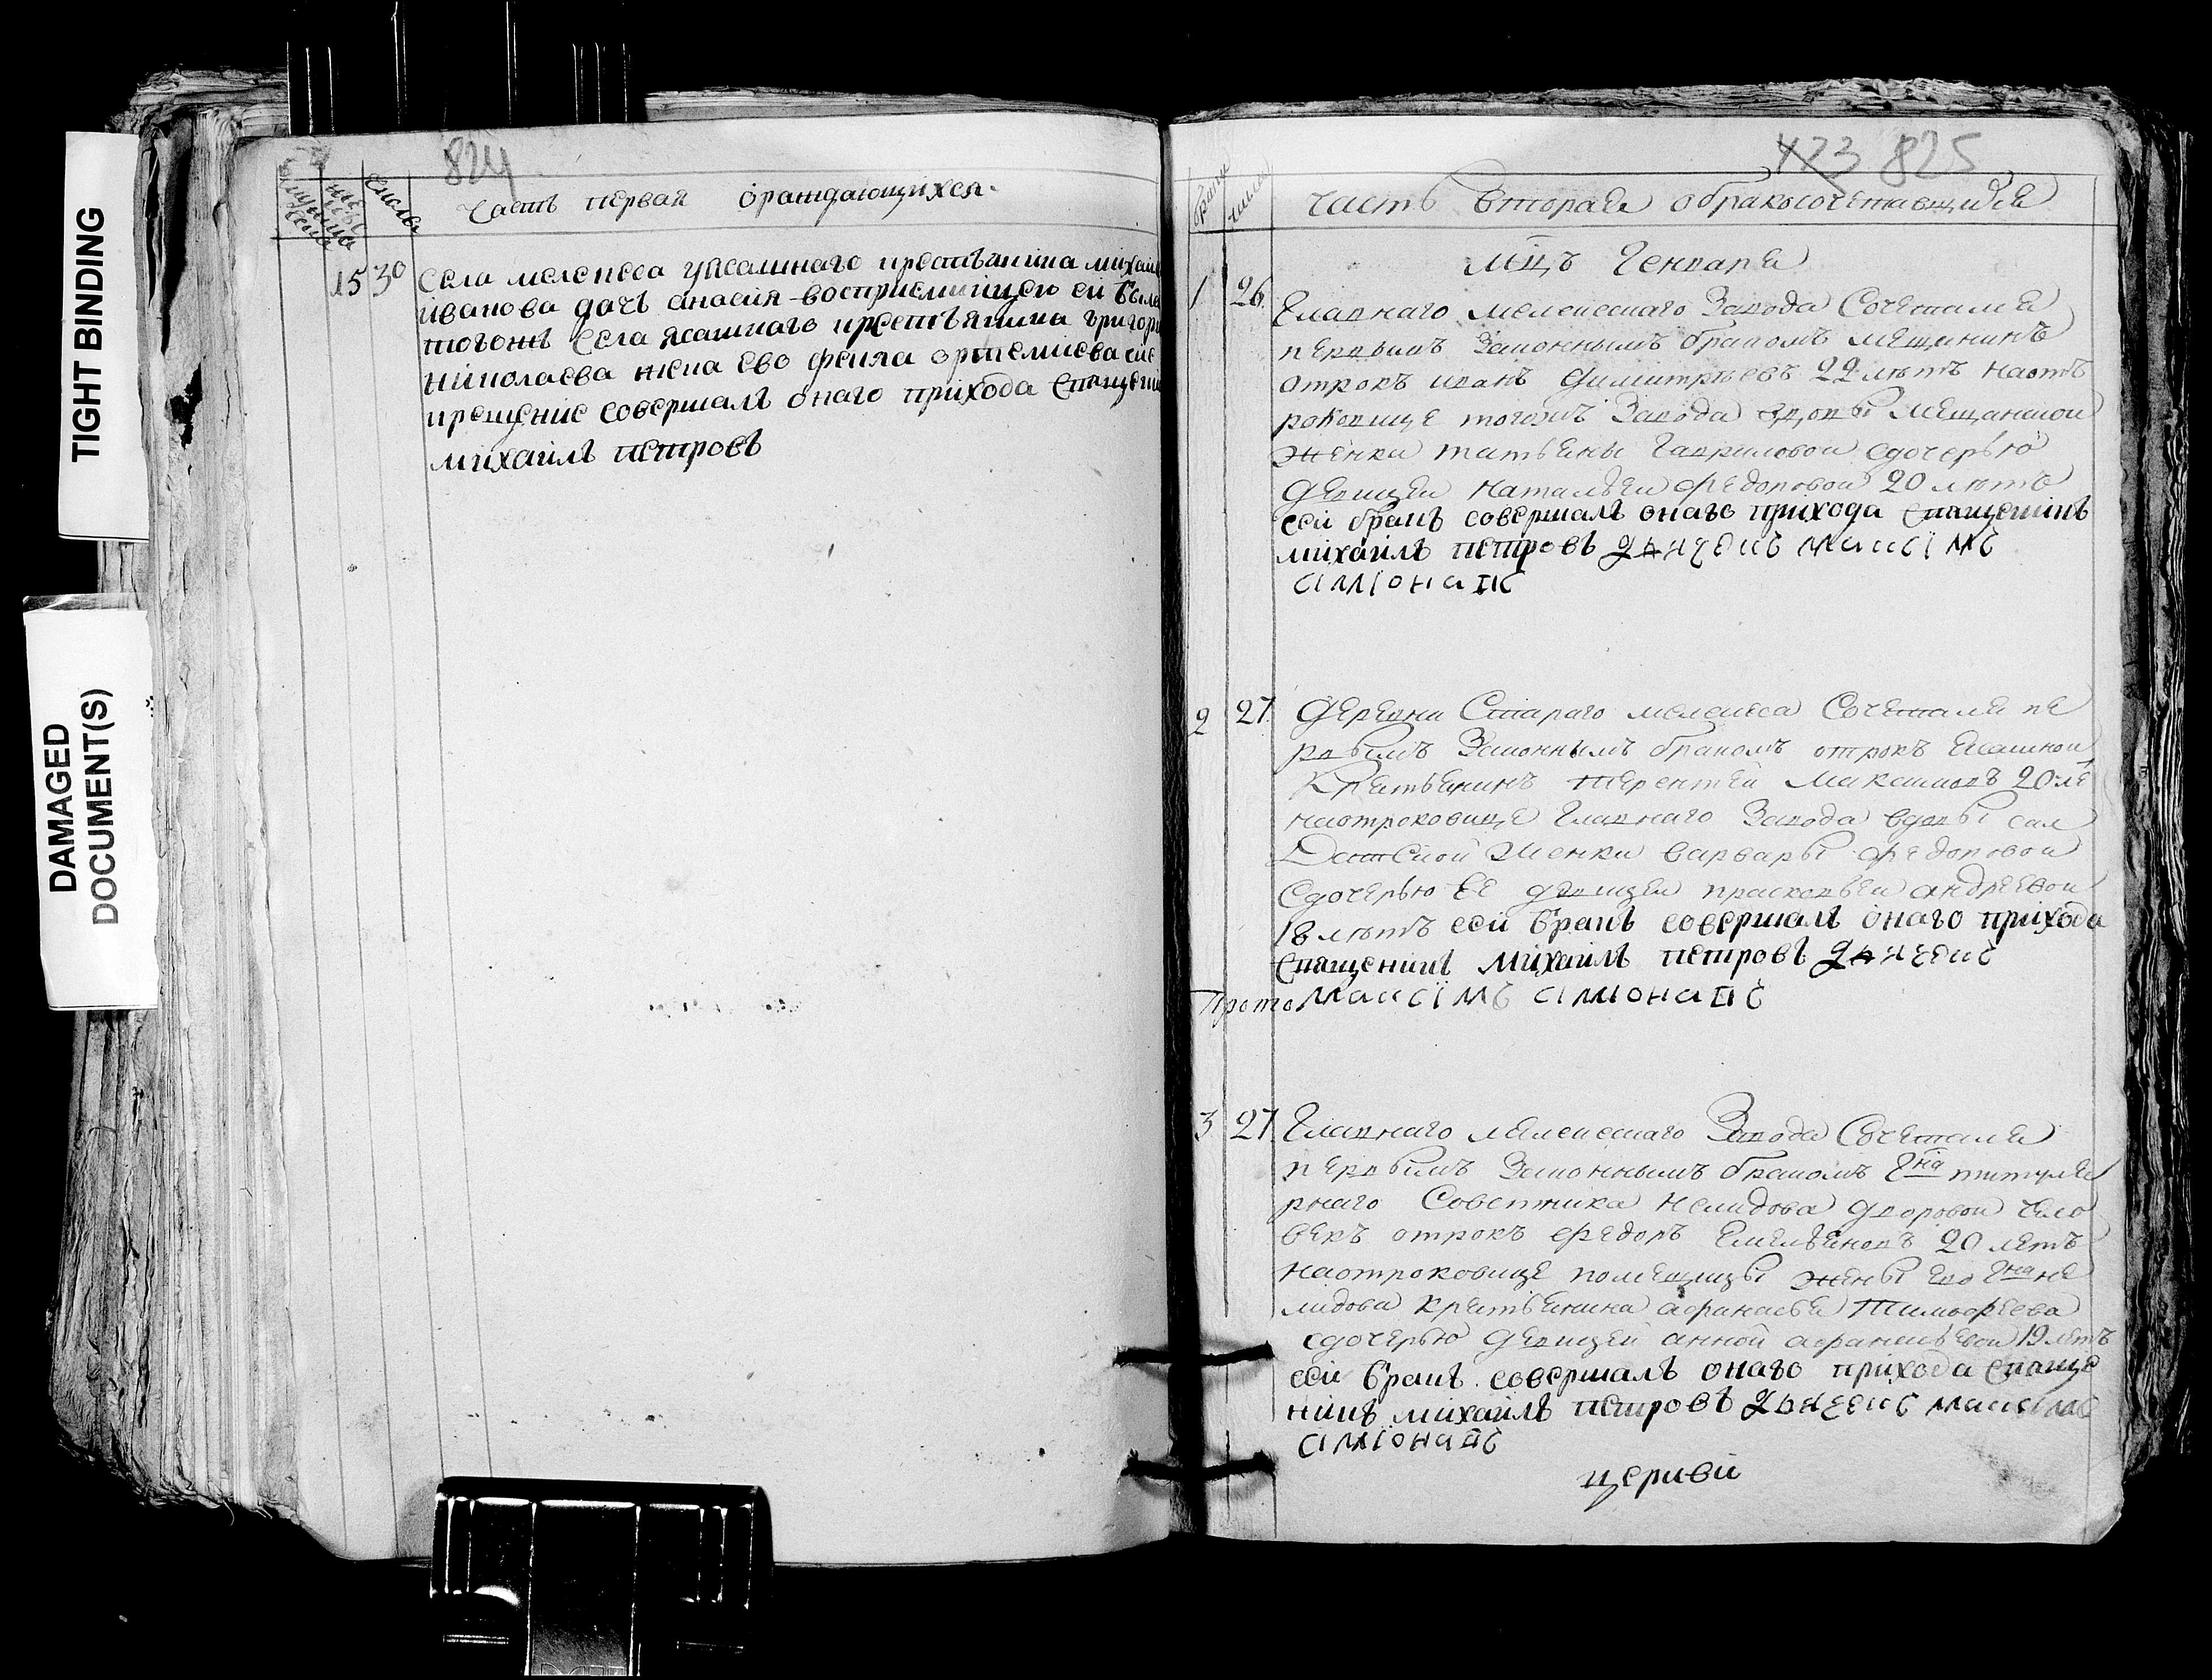 TIGHT BINDING
DAMAGED
DOCUMENT(S)
824
числа
часть первая ораждающихся
15 30 села мелекеса уясашнаго крестьянина михаил
иванова дочь анасия восприемницею ей была
тогожъ села ясашнаго крестьянина григор
николаева жена ево фекла ортемиева сие
крещение совершалъ онаго прихода священи
михаилъ петровъ
423 825
браки числа
часть вторая обракосочетавщихся
мцъ Генваря
1 26 Главнаго мелекескаго Завода Сочетался
первымъ Законнымъ бракомъ мещанинъ
отрокъ иванъ Димитрьевъ 22 лѣтъ наот
роковице тогожъ Завода вдовы мещанской
женки татьяны Гавриловой сдочерью
Девицей натальей федоровой 20 лѣтъ
сей бракъ совершалъ онаго прихода священикъ
михаилъ петровъ Дьячекъ максїмъ
сімїонавъ
2 27 Деревни Стараго мелекеса Сочетался пе
рвымъ Законнымъ бракомъ отрокъ Ясашной
Крестьянинъ терентей Максимовъ 20 лѣ
наотроковице Главнаго Завода вдовы сал
Датской женки варвары федоровой
Сдочерью ее девицей прасковьей андреевой
18 лѣтъ сей бракъ совершалъ онаго прихода
священикъ михаилъ петровъ Дьячекъ
Прото максїмъ сімїонавъ
3 27 Главнаго мелекескаго Завода Сочетался
первымъ Законнымъ бракомъ Гна титуля
рнаго Советника нелидова Дворовой чело
векъ отрокъ федоръ Емельяновъ 20 лѣтъ
наотроковице помещицы жены ево Гна не
лидова крестьянина афанасья Тимофеева
сдочерью девицей анной афанасьевой 19 лѣтъ
сей бракъ совершалъ онаго прихода свяще
никъ михаилъ петровъ Дьячекъ максїмъ
сімїонавъ
церкви